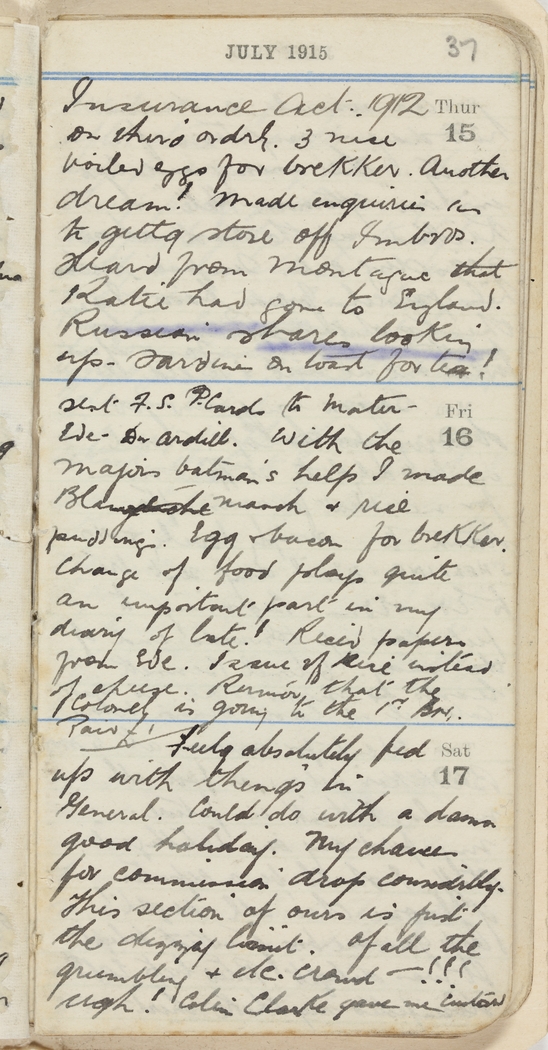 JULY 1915 37
Insurance Act. 1912 Thur
on thro' ordrl. 3 nice 15
boiled eggs for brekker. Another
dream! Made enquiries as
to gettg store off Imbros.
Heard from Montague that
Katie had gone to England.
Russian shares looking
up - Sardines on toast for tea!
sent F.S. P.Cards to Mater - Fri
Eve - Dr Ardill. With the 16
majors batman's help I made
Blang march & rice
puddings. Egg & bacon for brekker.
Change of food plays quite
an important part in my
diary of late! Recd papers
from Eve. Issue of rice instead
of cheese. Rumor, that the
Colonel is going to the 1st Bde.
Paid £1
Feelg absolutely fed Sat
up with things in 17
General. Could do with a damn
good holiday. My chances
for commission drop considrbly.
This section of ours is just
the dizzy limit. Of all the
grumbling & etc. crowd - !!!
ugh! Colin Clarke gave me custard